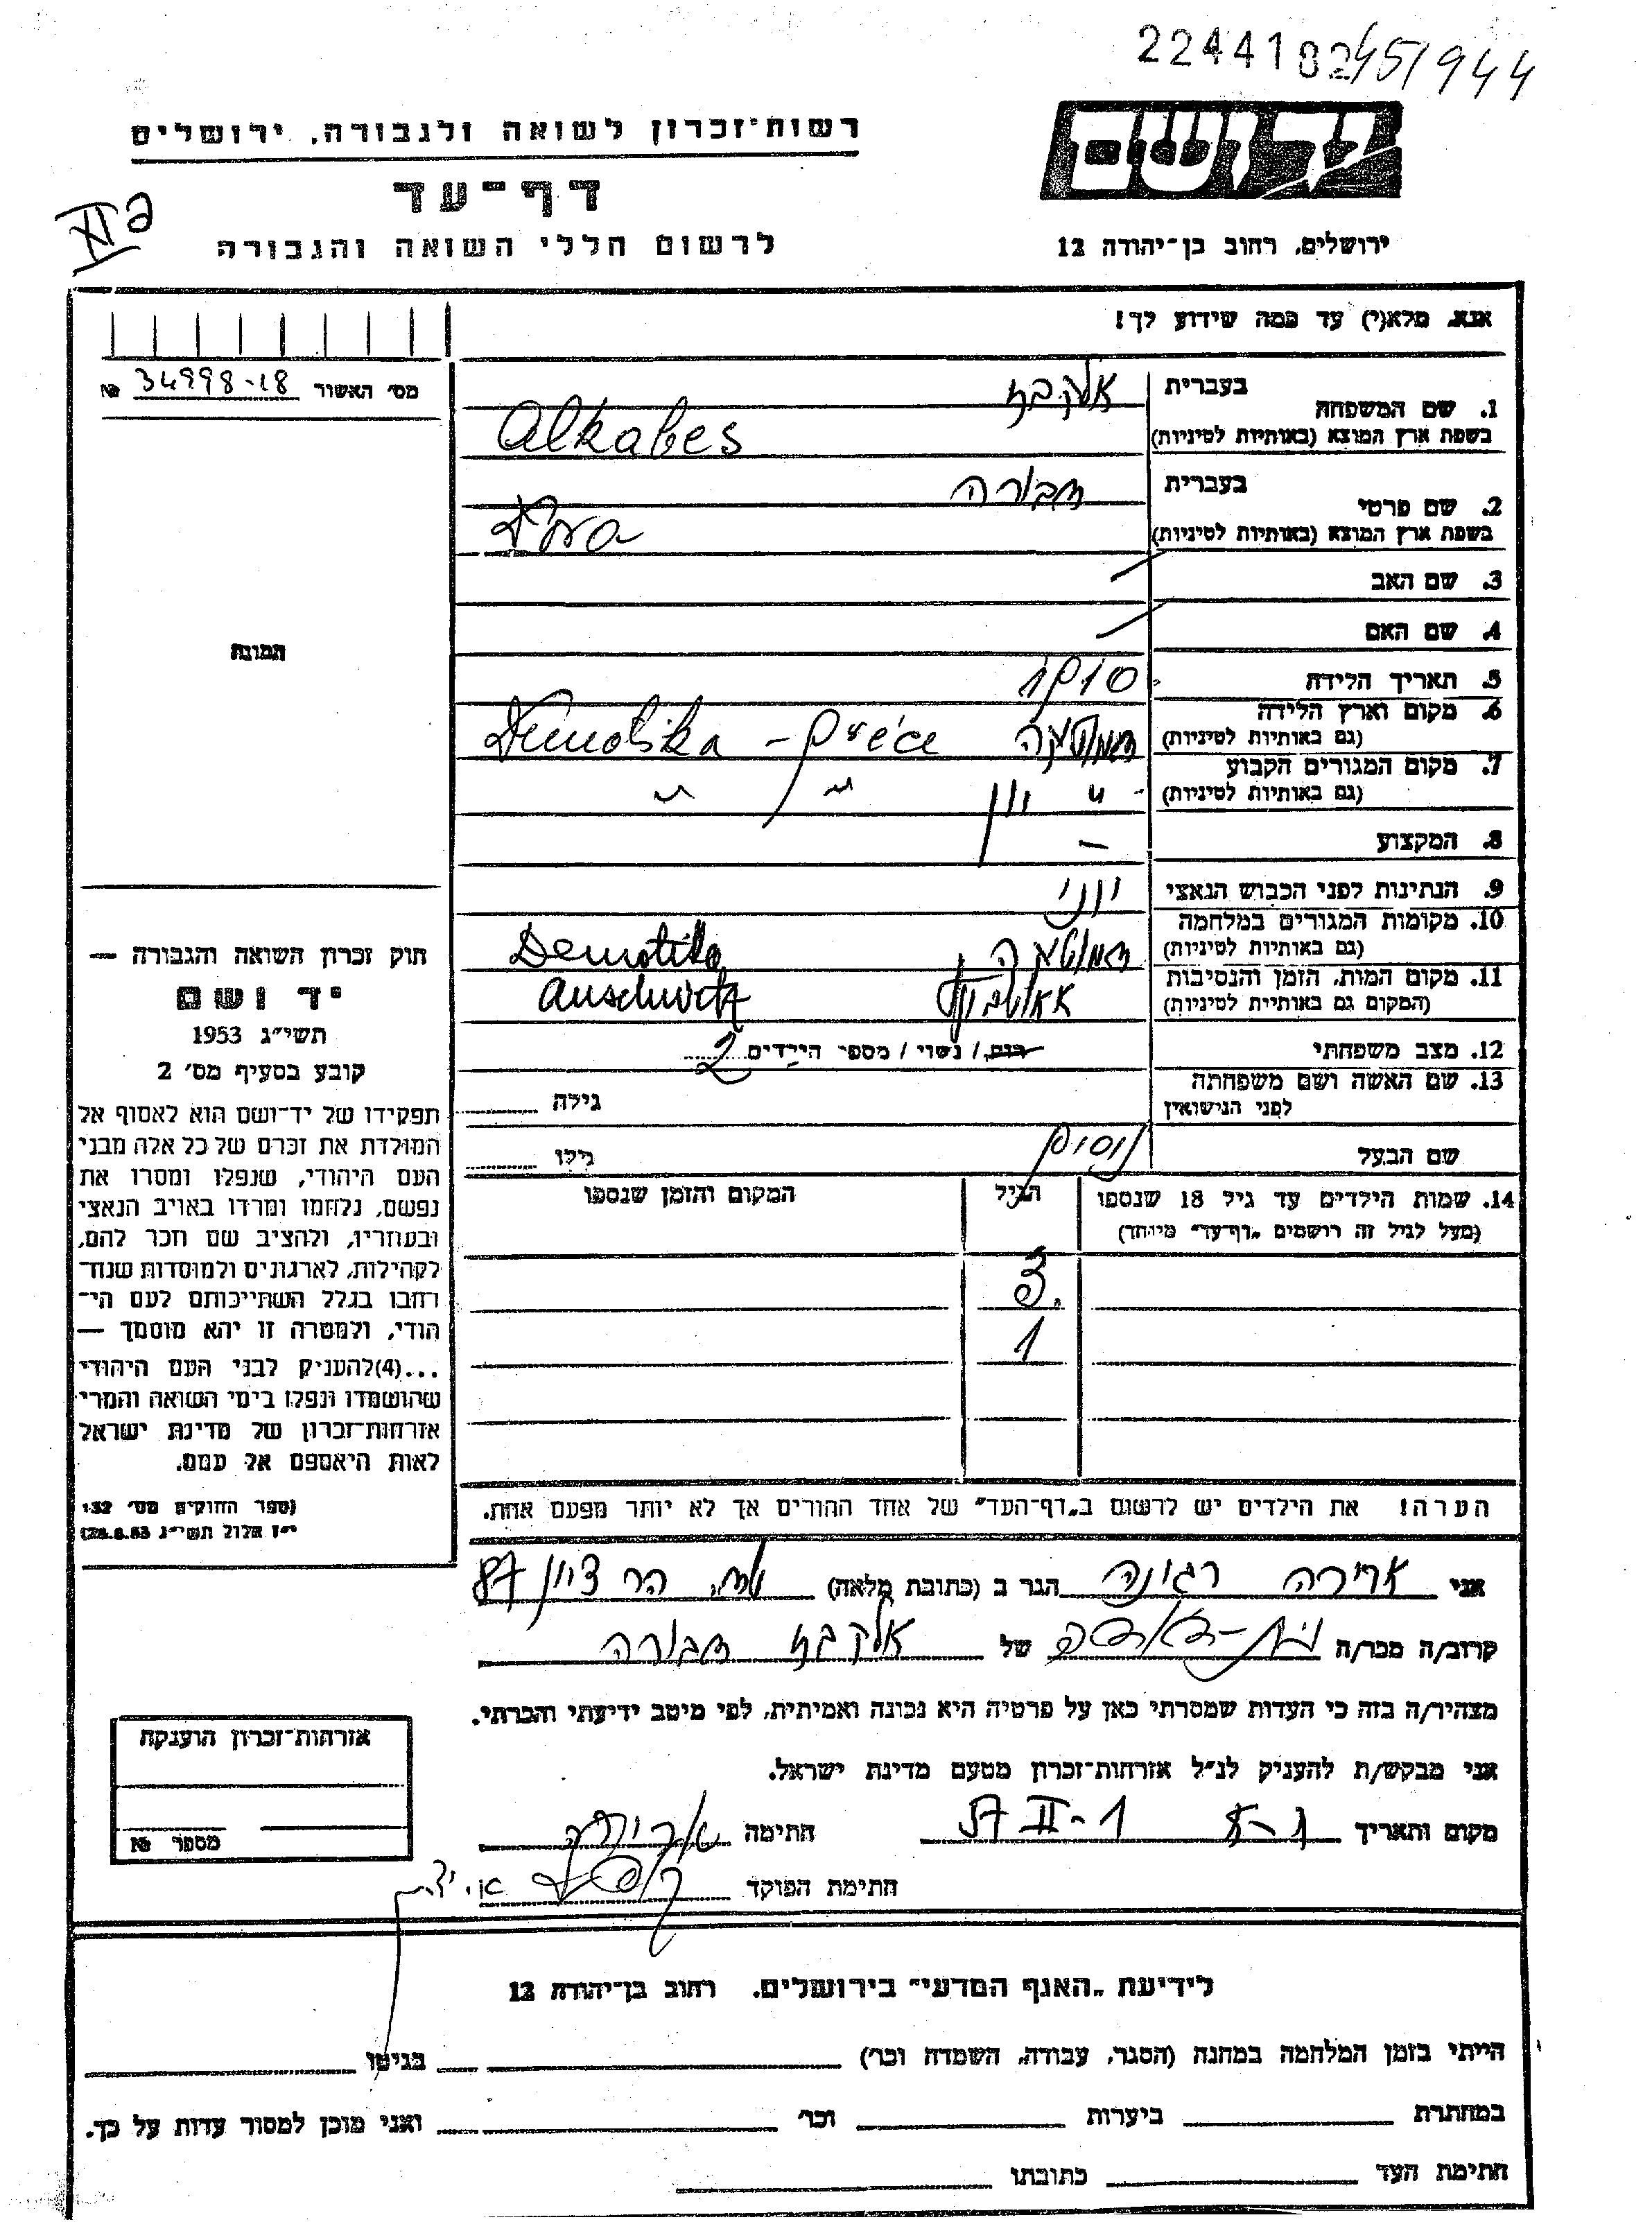 2244182 45/944
רשות־זכרון לשואה ולגבורה, ירושלים
דף־עד
לרשום חללי השואה והגבורה
ירושלים, רחוב בן־יהודה 12
אנא, מלא(י) עד כמה שידוע לך!
מס׳ האשור 34998-18 №
תמונה
1. שם המשפחה
בעברית אלקבץ
בשפת ארץ המוצא (באותיות לטיניות) Alkabes
2. שם פרטי
בעברית דבורה
בשפת ארץ המוצא (באותיות לטיניות)
3. שם האב
4. שם האם
5. תאריך הלידה
6. מקום וארץ הלידה
(גם באותיות לטיניות) דמוטיקה Demotika - Grèce
7. מקום המגורים הקבוע
(גם באותיות לטיניות) " יוון " "
8. המקצוע –
9. הנתינות לפני הכבוש הנאצי יווני
10. מקומות המגורים במלחמה
(גם באותיות לטיניות) דמוטיקה Demotika
11. מקום המות, הזמן והנסיבות
(המקום גם באותיות לטיניות) אאושביץ Auschwitz
12. מצב משפחתי רוק / נשוי / מספר הילדים 2
13. שם האשה ושם משפחתה
לפני הנישואין גילה
שם הבעל נוסים גילו
14. שמות הילדים עד גיל 18 שנספו הגיל המקום והזמן שנספו
(מעל לגיל זה רושמים „דף־עד״ מיוחד)
3.
1
הערה! את הילדים יש לרשום ב„דף־העד״ של אחד ההורים אך לא יותר מפעם אחת.
חוק זכרון השואה והגבורה —
יד ושם
תשי״ג 1953
קובע בסעיף מס׳ 2
תפקידו של יד־ושם הוא לאסוף אל
המולדת את זכרם של כל אלה מבני
העם היהודי, שנפלו ומסרו את
נפשם, נלחמו ומרדו באויב הנאצי
ובעוזריו, ולהציב שם וזכר להם,
לקהילות, לארגונים ולמוסדות שנח־
רבו בגלל השתייכותם לעם הי־
הודי, ולמטרה זו יהא מוסמך —
...(4)להעניק לבני העם היהודי
שהושמדו ונפלו בימי השואה והמרי
אזרחות־זכרון של מדינת ישראל
לאות היאספם אל עמם.
(ספר החוקים מס׳ 132
י״ז אלול תשי״ג 28.8.53)
אני רגונה הגר ב (כתובת מלאה) הר ציון 87
קרוב/ה מכר/ה בת-דודה של אלקבץ דבורה
מצהיר/ה בזה כי העדות שמסרתי כאן על פרטיה היא נכונה ואמיתית, לפי מיטב ידיעתי והכרתי.
אני מבקש/ת להעניק לנ״ל אזרחות־זכרון מטעם מדינת ישראל.
מקום ותאריך 1-II 57 חתימה
חתימת הפוקד
אזרחות־זכרון הוענקה
מספר №
לידיעת „האגף המדעי״ בירושלים, רחוב בן־יהודה 12
הייתי בזמן המלחמה במחנה (הסגר, עבודה, השמדה וכר׳) בגיטו
במחתרת ביערות וכר׳ ואני מוכן למסור עדות על כך.
חתימת העד כתובתו